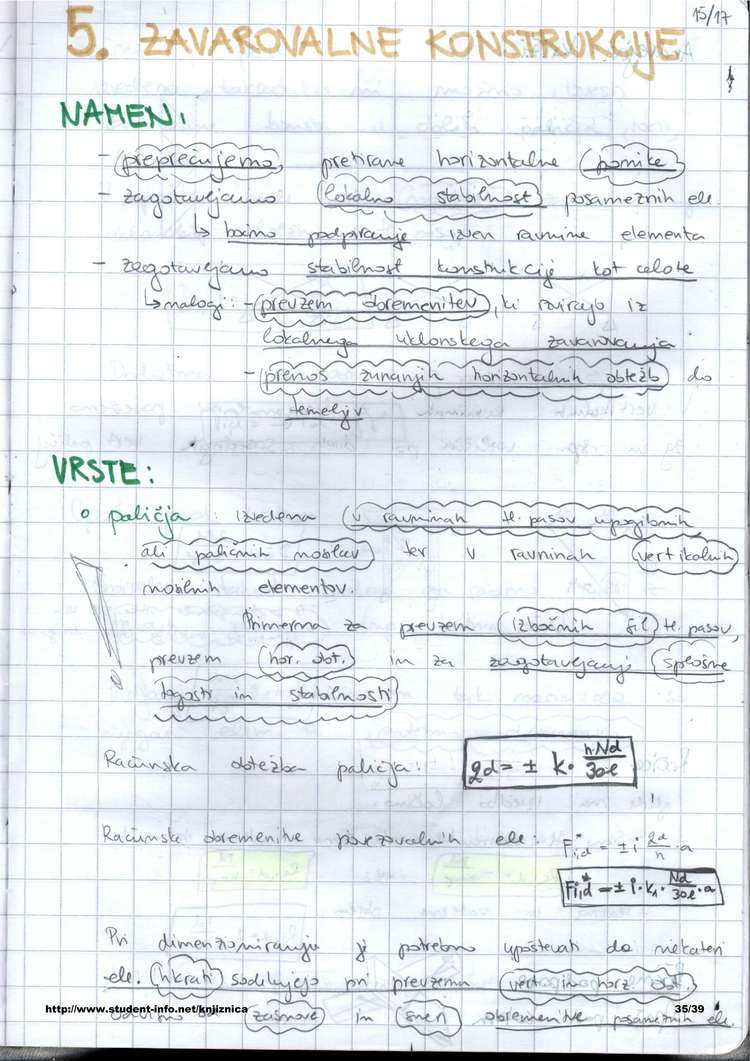 15/17
5. ZAVAROVALNE KONSTRUKCIJE
NAMEN:
- preprečujemo pretirane horizontalne pomike
- zagotavljamo lokalno stabilnost posameznih ele.
↳ bočno podpiranje izven ravnine elementa
- zagotavljamo stabilnost konstrukcije kot celote
↳ nalogi: - prevzem obremenitev, ki izvirajo iz
lokalnega uklonskega zavarovanja
- prenos zunanjih horizontalnih obtežb do
temeljev
VRSTE:
o paličja: izvedena v ravninah tl. pasov upogibnih
ali paličnih nosilcev ter v ravninah vertikalnih
nosilnih elementov.
Primerna za prevzem izbočnih sil tl. pasov,
prevzem hor. obt. in za zagotavljanje splošne
togosti in stabilnosti
Računska obtežba paličja: qd = ± k · n·Nd / 30·l
Računske obremenitve povezovalnih ele: Fi,d* = ± i qd/n · a
Fi,d* = ± i · k₁ · Nd / 30·l · a
Pri dimenzioniranju je potrebno upoštevati da nekateri
ele. hkrati sodelujejo pri prevzemu vert in horz obt.
http://www.student-info.net/knjiznica 35/39
odvisno od zasnove in smeri obremenitve posameznih ele.